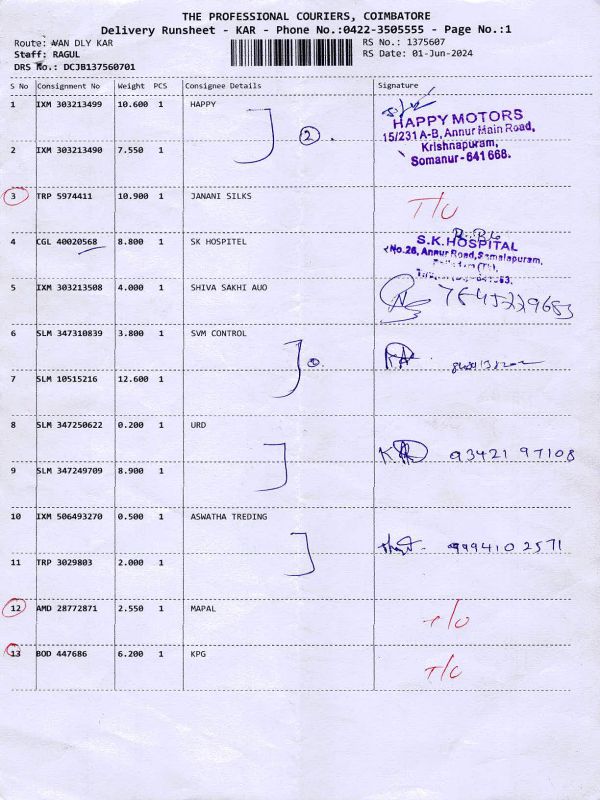 THE PROFESSIONAL COURIERS, COIMBATORE
Delivery Runsheet - KAR - Phone No.:0422-3505555 - Page No.:1
Route: WAN DLY KAR
RS No.: 1375607
Staff: RAGUL
RS Date: 01-Jun-2024
DRS No.: DCJB137560701
S No Consignment No Weight PCS Consignee Details Signature
1 IXM 303213499 10.600 1 HAPPY
HAPPY MOTORS
15/231 A-B, Annur Main Road,
Krishnapuram,
Somanur - 641 668.
2
2 IXM 303213490 7.550 1
3 TRP 5974411 10.900 1 JANANI SILKS T/U
4 CGL 40020568 8.800 1 SK HOSPITEL
S.K.HOSPITAL
No.26, Annur Road, Samalapuram,
5 IXM 303213508 4.000 1 SHIVA SAKHI AUO
6 SLM 347310839 3.800 1 SVM CONTROL
7 SLM 10515216 12.600 1
8 SLM 347250622 0.200 1 URD
93421 97108
9 SLM 347249709 8.900 1
10 IXM 506493270 0.500 1 ASWATHA TREDING
999410 2571
11 TRP 3029803 2.000 1
12 AMD 28772871 2.550 1 MAPAL T/U
13 BOD 447686 6.200 1 KPG T/U